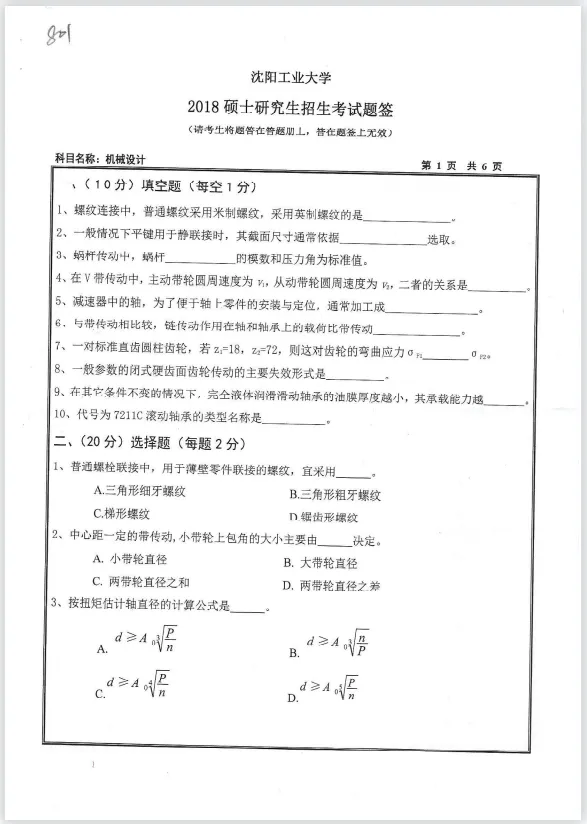 801
沈阳工业大学
2018 硕士研究生招生考试题签
(请考生将题答在答题册上,答在题签上无效)
科目名称:机械设计
第 1 页 共 6 页
、(10分)填空题(每空1分)
1、螺纹连接中,普通螺纹采用米制螺纹,采用英制螺纹的是__________。
2、一般情况下平键用于静联接时,其截面尺寸通常依据__________选取。
3、蜗杆传动中,蜗杆__________的模数和压力角为标准值。
4、在V带传动中,主动带轮圆周速度为 v₁,从动带轮圆周速度为 v₂,二者的关系是__________。
5、减速器中的轴,为了便于轴上零件的安装与定位,通常加工成__________。
6、与带传动相比较,链传动作用在轴和轴承上的载荷比带传动__________。
7、一对标准直齿圆柱齿轮,若 z₁=18,z₂=72,则这对齿轮的弯曲应力 σF1______σF2。
8、一般参数的闭式硬齿面齿轮传动的主要失效形式是__________。
9、在其它条件不变的情况下,完全液体润滑滑动轴承的油膜厚度越小,其承载能力越______。
10、代号为 7211C 滚动轴承的类型名称是__________。
二、(20分)选择题(每题2分)
1、普通螺栓联接中,用于薄壁零件联接的螺纹,宜采用_____。
A.三角形细牙螺纹 B.三角形粗牙螺纹
C.梯形螺纹 D.锯齿形螺纹
2、中心距一定的带传动,小带轮上包角的大小主要由_____决定。
A. 小带轮直径 B. 大带轮直径
C. 两带轮直径之和 D. 两带轮直径之差
3、按扭矩估计轴直径的计算公式是_____。
A. d ≥ A₀∛(P/n) B. d ≥ A₀∛(n/P)
C. d ≥ A₀∜(P/n) D. d ≥ A₀⁵√(P/n)
1